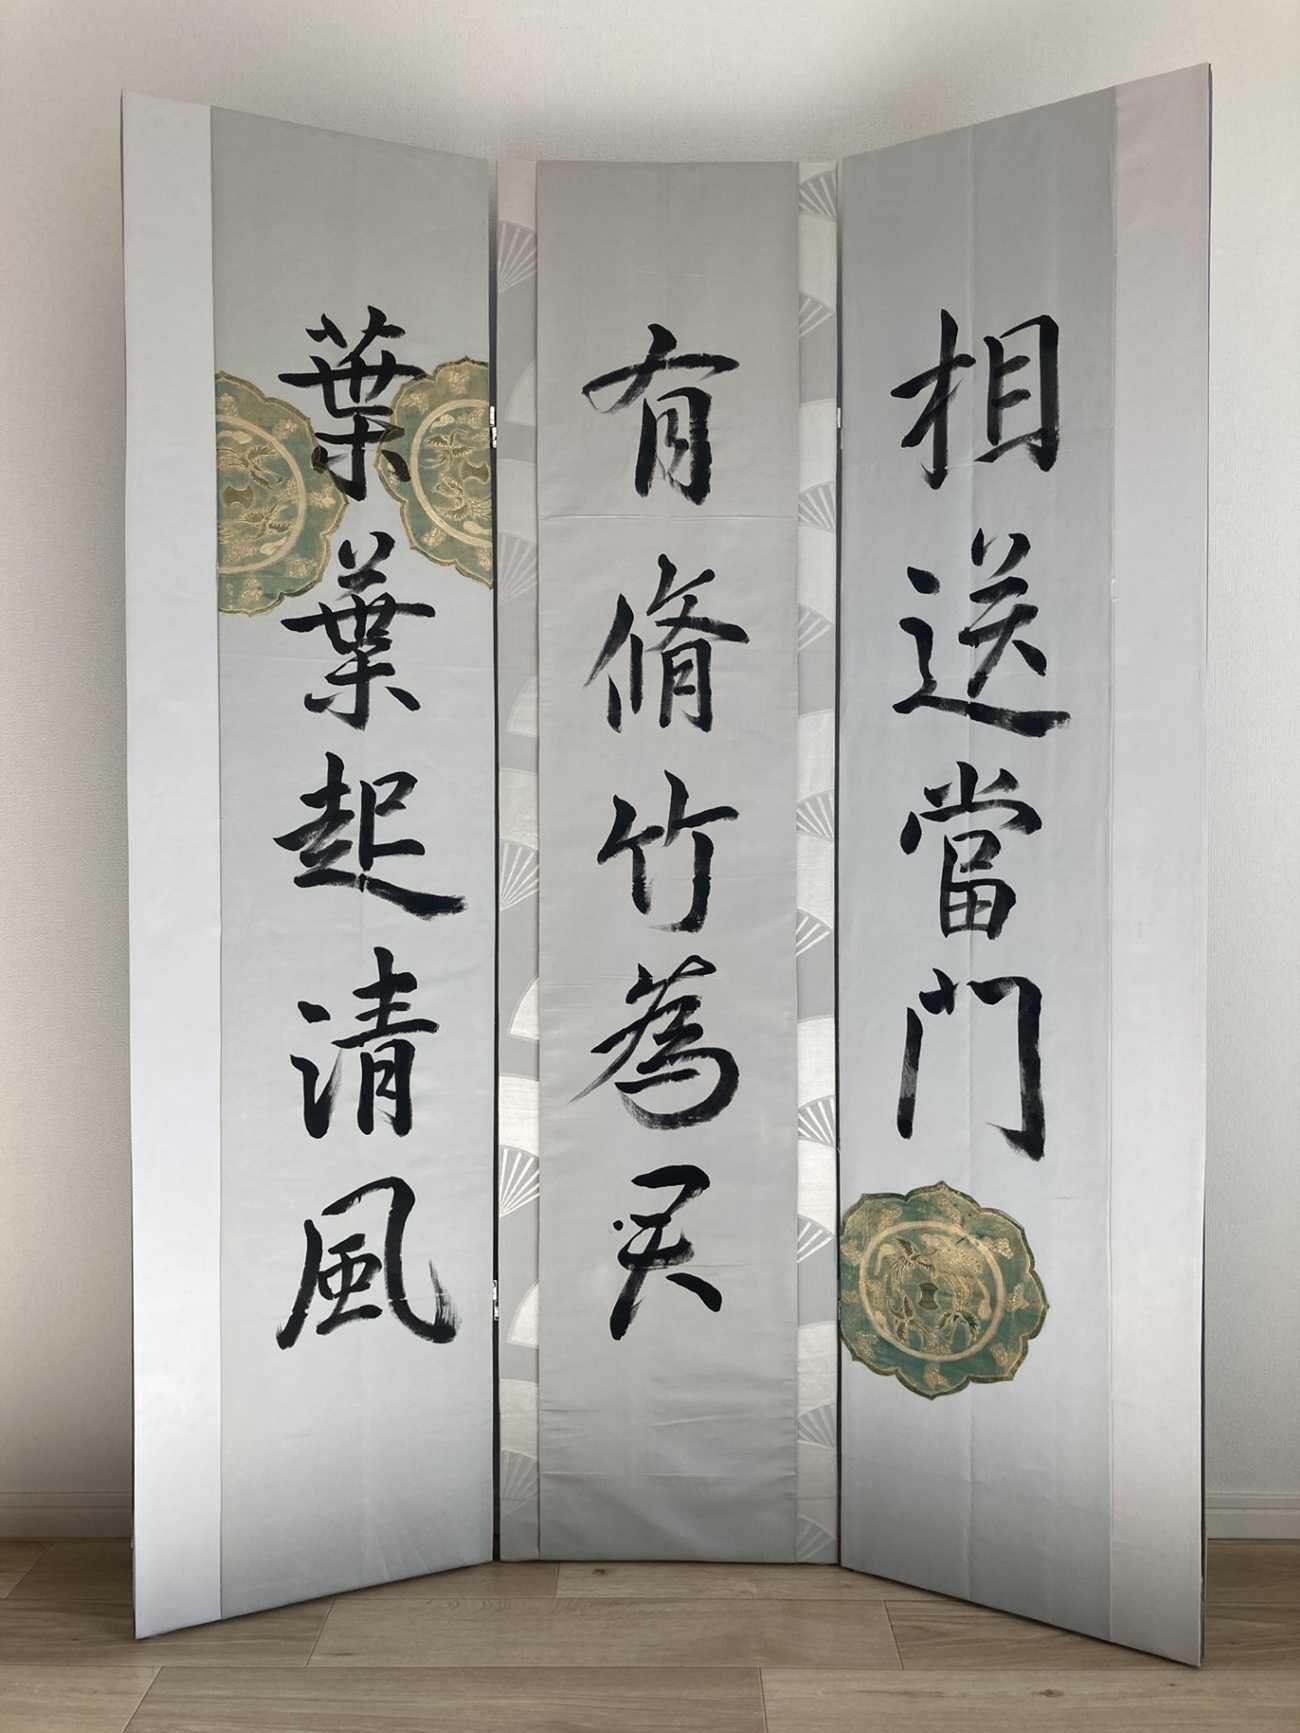 相送當門
有脩竹為君
葉葉起清風